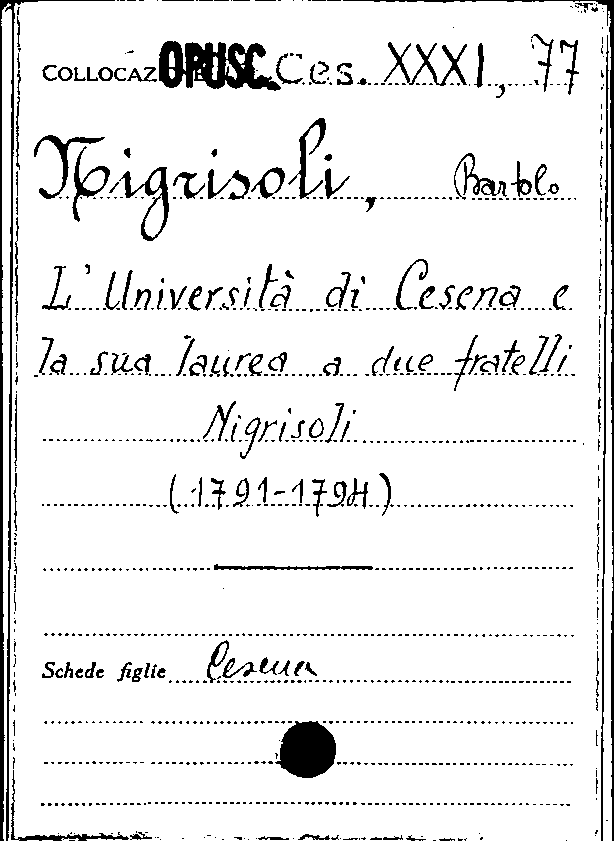 COLLOCAZIONE OPUSC. Ces. XXXI, 77
Nigrisoli, Bartolo
L'Università di Cesena e
la sua laurea a due fratelli
Nigrisoli
(1791-1794)
Schede figlie Cesena